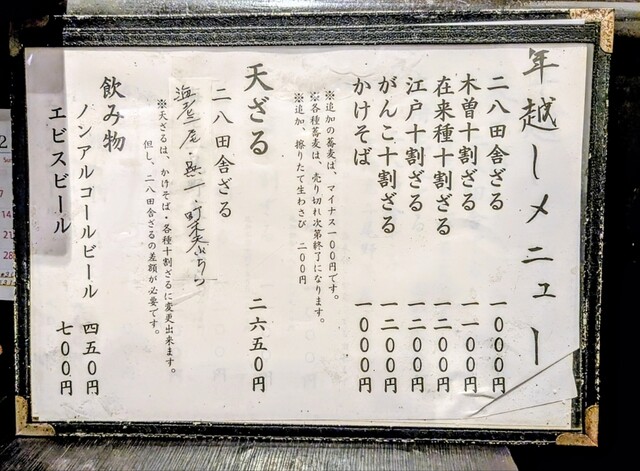 年越しメニュー
二八田舎ざる 一〇〇〇円
木曽十割ざる 一一〇〇円
在来種十割ざる 一二〇〇円
江戸十割ざる 一二〇〇円
がんこ十割ざる 一二〇〇円
かけそば 一〇〇〇円
※追加の蕎麦は、マイナス一〇〇円です。
※各種蕎麦は、売り切れ次第終了になります。
※追加、擦りたて生わさび 二〇〇円
天ざる 二六五〇円
二八田舎ざる
海老二尾・
※天ざるは、かけそば・各種十割ざるに変更出来ます。
但し、二八田舎ざるの差額が必要です。
飲み物
ノンアルコールビール 四五〇円
エビスビール 七〇〇円
2
7
14
21
28